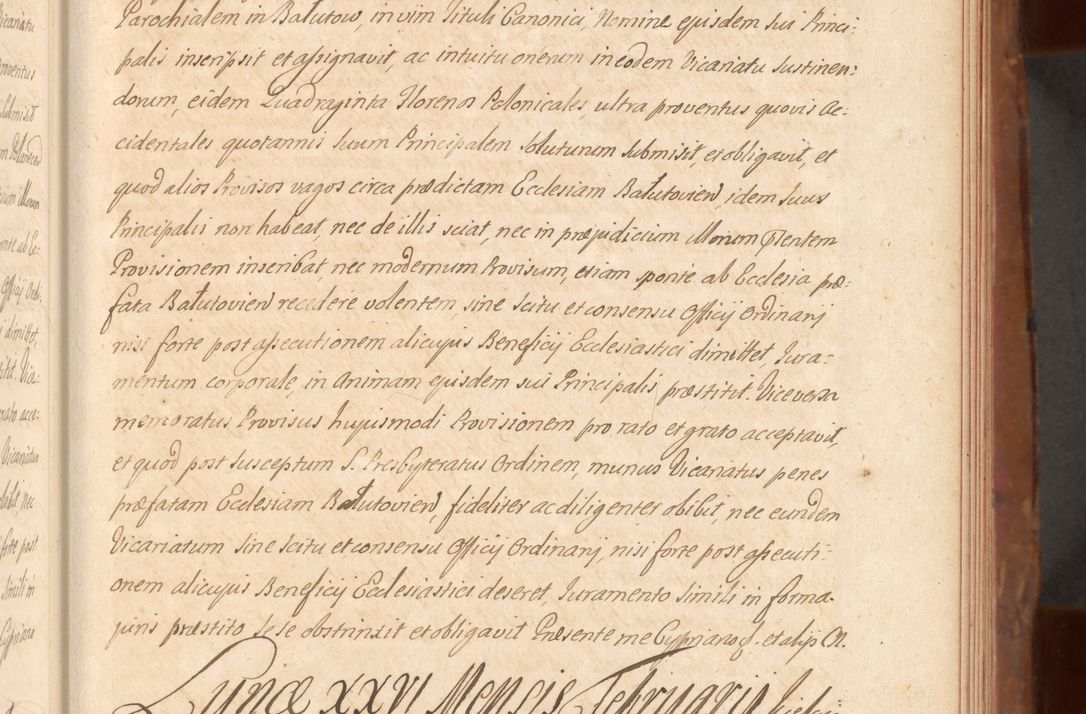 Parochialem in Bałutow, in vim Tituli Canonici, Nomine ejusdem sui Princi-
palis inscripsit et assignavit, ac intuitu onerum in eodem Vicariatu sustinen-
dorum, eidem Quadraginta Florenos Polonicales, ultra proventus quovis Ac-
cidentales quotannis suum Principalem soluturum submisit, et obligavit, et
quod alios Provisos vagos circa prædictam Ecclesiam Bałutovien, idem suus
Principalis non habeat, nec de illis sciat, nec in præjudicium illorum
Provisionem inscribat, nec modernum Provisum, etiam sponte ab Ecclesia præ-
fata Bałutovien recedere volentem, sine scitu et consensu Officij Ordinarij
nisi forte post assecutionem alicujus Beneficij Ecclesiastici dimittet, Jura-
mentum corporale, in Animam ejusdem sui Principalis præstitit. Vice versa
memoratus Provisus hujusmodi Provisionem pro rato et grato acceptavit,
et quod post susceptum S. Presbyteratus Ordinem, munus Vicariatus penes
præfatam Ecclesiam Bałutovien, fideliter ac diligenter obibit, nec eundem
Vicariatum sine scitu et consensu Officij Ordinarij, nisi forte post assecuti-
onem alicujus Beneficij Ecclesiastici deseret, Juramento simili in forma
juris præstito sese obstrinxit et obligavit Præsente me Cypriano et alijs
Lunæ XXVI Mensis Februarij